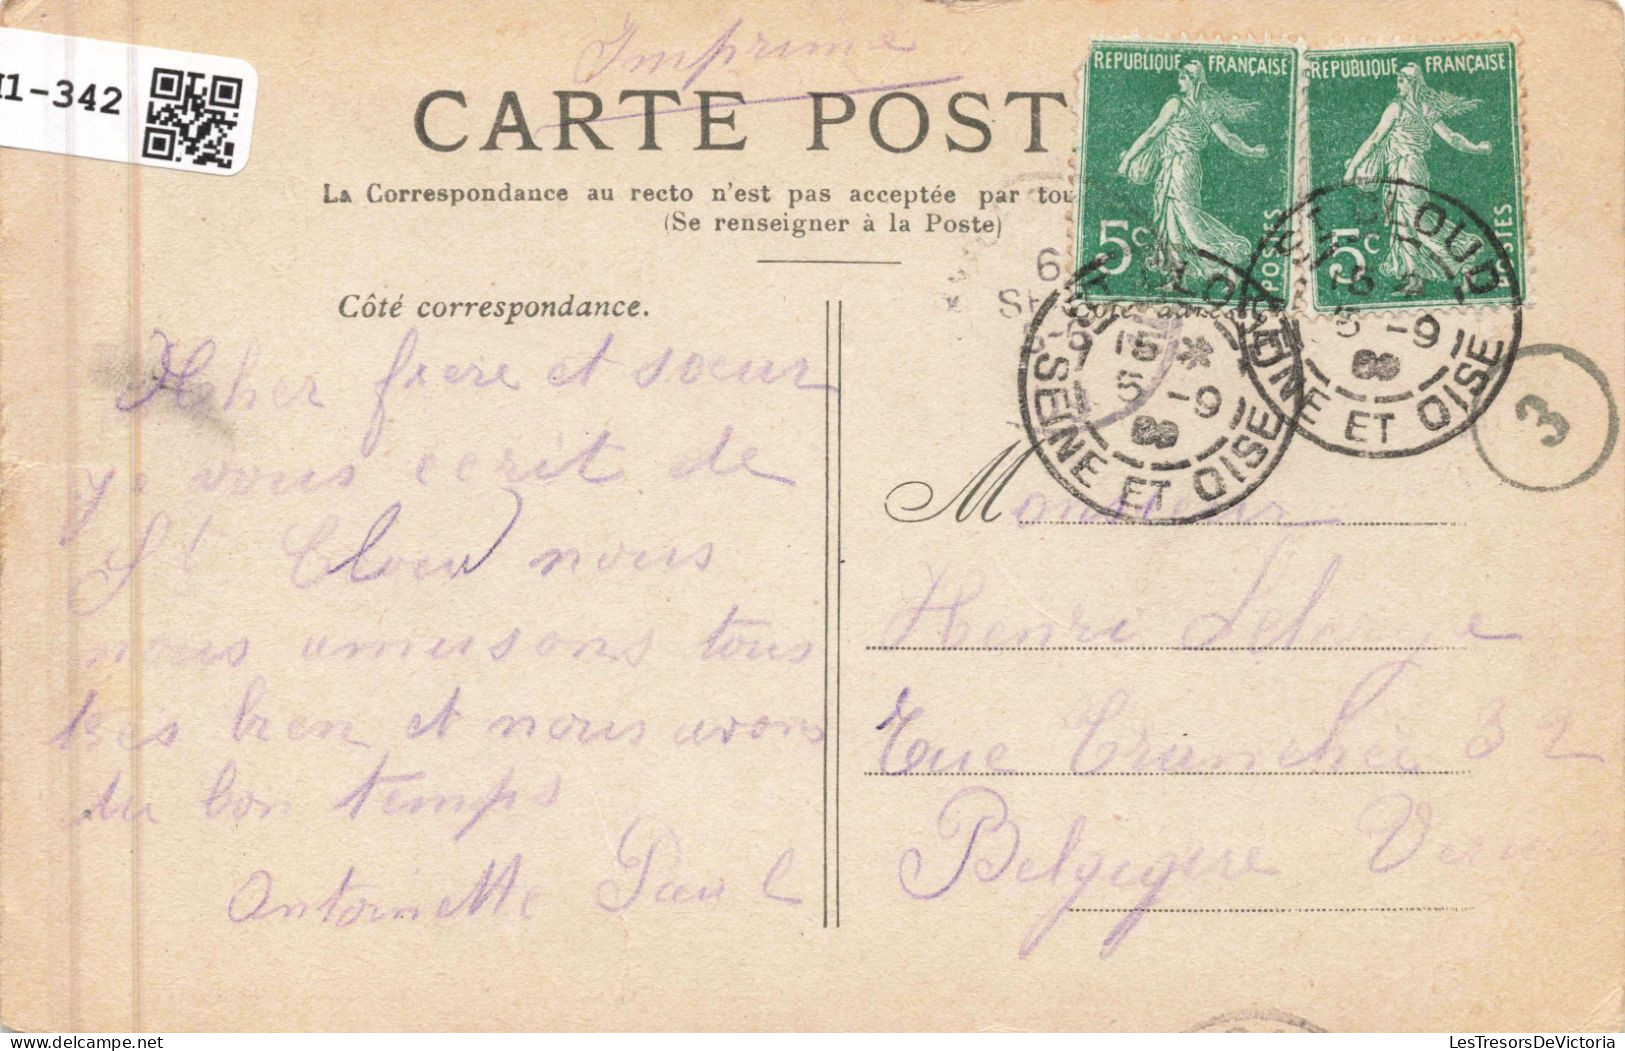 1-342
Imprimé
CARTE POST
La Correspondance au recto n'est pas acceptée par tou
(Se renseigner à la Poste)
REPUBLIQUE FRANÇAISE
5c POSTES
REPUBLIQUE FRANÇAISE
5c POSTES
ST CLOUD
15 *
5 -9
08
SEINE ET OISE
ST CLOUD
15 *
5 -9
08
SEINE ET OISE
6
3
Côté correspondance.
Cher frere et sœur
je vous ecrit de
St Cloud nous
nous amusons tous
tres bien et nous avons
du bon temps
Antoinette Paul
Monsieur
Henri Lelarge
rue Tranchée 32
Belgigue
LesTresorsDeVictoria.com